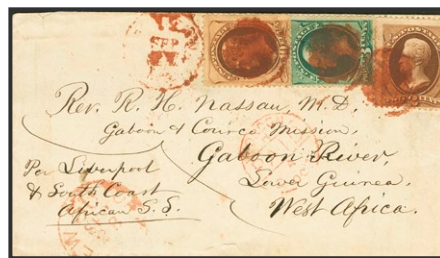 Rev. R. H. Nassau, M.D.,
Gaboon & Corisco Mission,
Gaboon River,
Lower Guinea,
West Africa.
Per Liverpool
& South Coast
African S.S.